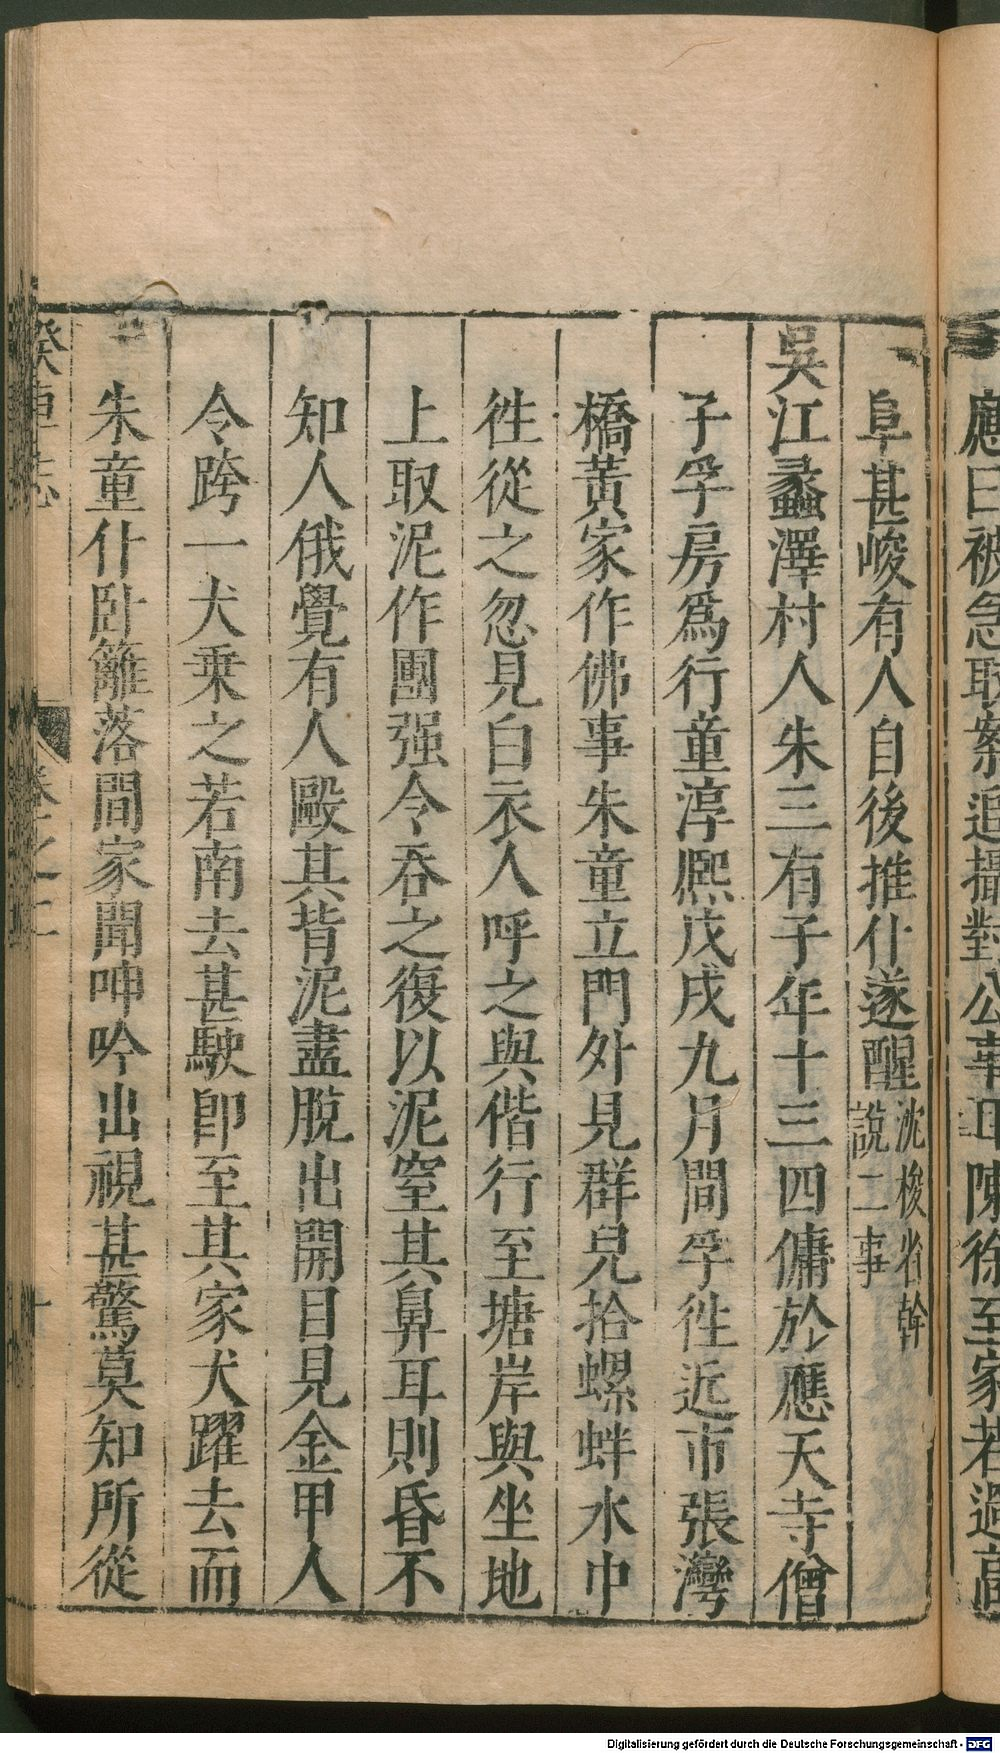 應曰被急取案追攝對公事耳陳徐至家若過高
阜甚峻有人自後推仆遂醒沈梭省幹
說二事
吳江蠡澤村人朱三有子年十三四傭於應天寺僧
子孚房爲行童淳熈戊戌九月間孚徃近市張灣
橋黃家作佛事朱童立門外見群兒拾螺蚌水中
徃從之忽見白衣人呼之與偕行至塘岸與坐地
上取泥作團强令吞之復以泥窒其鼻耳則昏不
知人俄覺有人毆其背泥盡脫出開目見金甲人
令跨一犬乗之若南去甚駛卽至其家犬躍去而
朱童仆卧籬落間家聞呻吟出視甚驚莫知所從
睽車志
卷之二
十
Digitalisierung gefördert durch die Deutsche Forschungsgemeinschaft - DFG